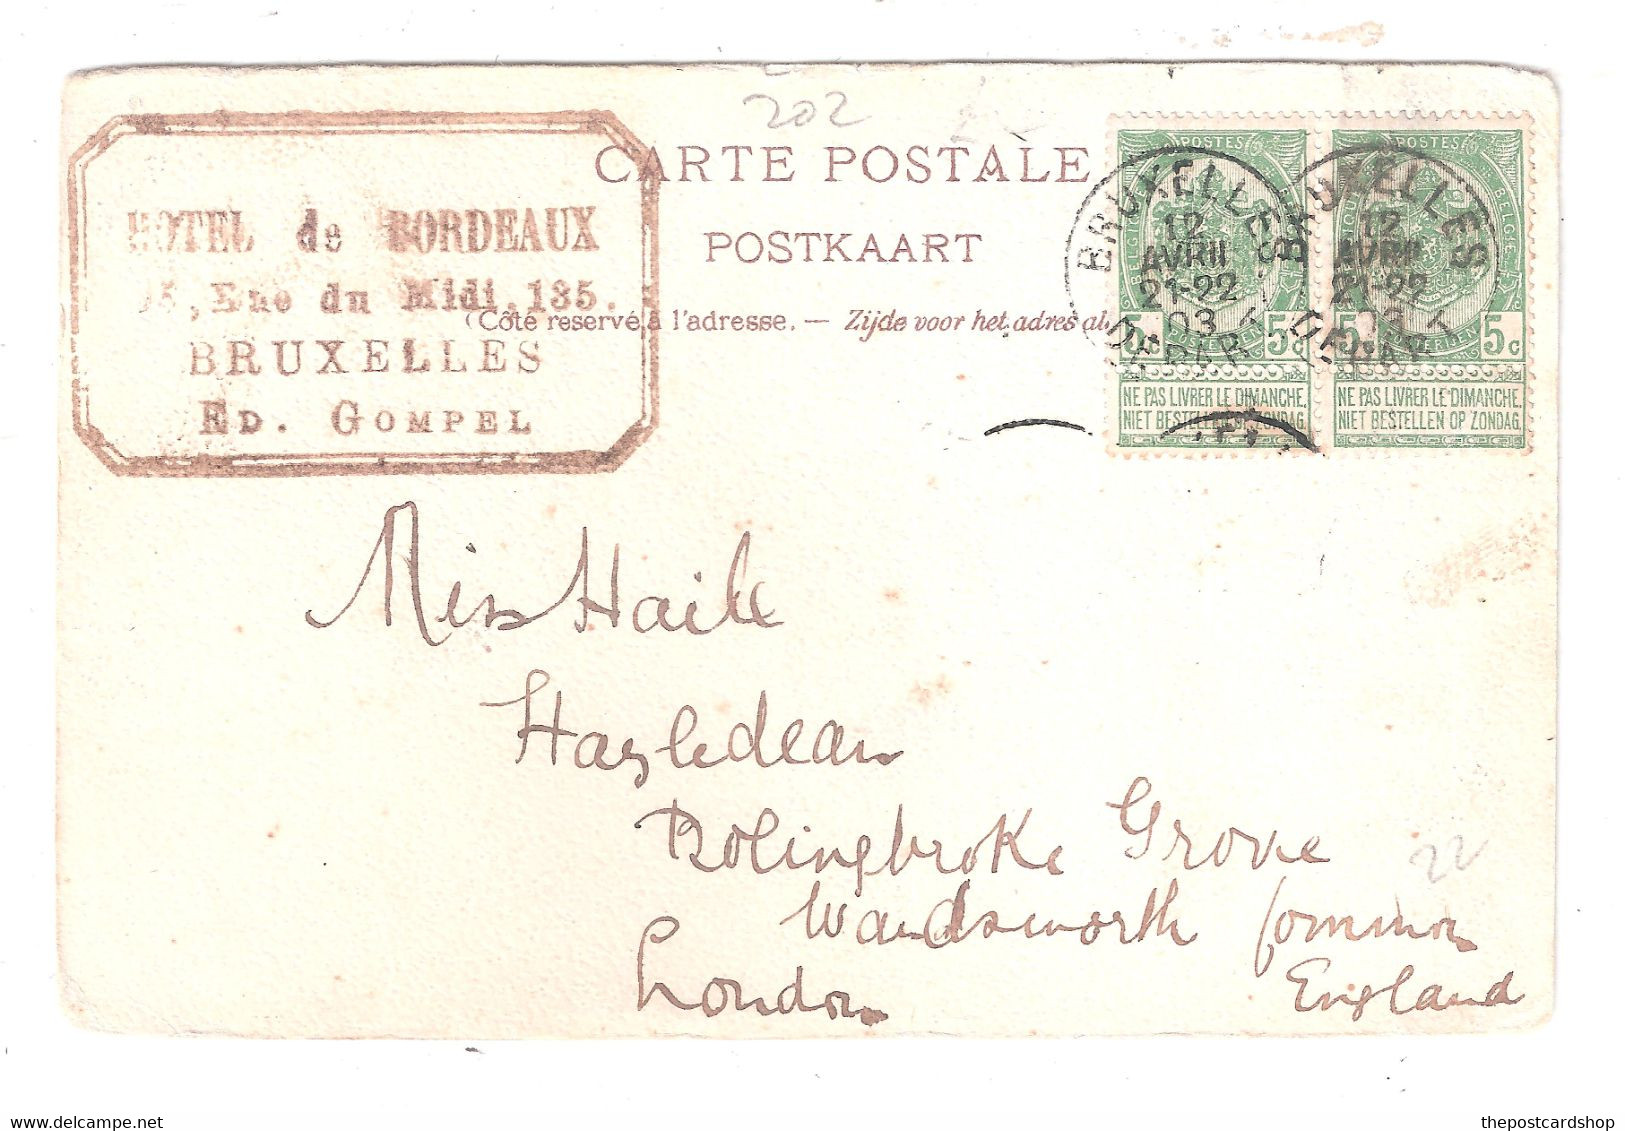 202
CARTE POSTALE
POSTKAART
(Côté reservé à l'adresse. — Zijde voor het adres
HOTEL de BORDEAUX
Rue du Midi, 135.
BRUXELLES
ED. GOMPEL
POSTES POSTES
BRUXELLES BRUXELLES
12 12
AVRIL AVRIL
21-22 21-22
03
DÉPART DÉPART
5c 5c 5c 5c
NE PAS LIVRER LE DIMANCHE. NE PAS LIVRER LE DIMANCHE.
NIET BESTELLEN OP ZONDAG. NIET BESTELLEN OP ZONDAG.
Miss Haile
Hazledean
Bolingbroke Grove
22
Wandsworth Common
London England
thepostcardshop